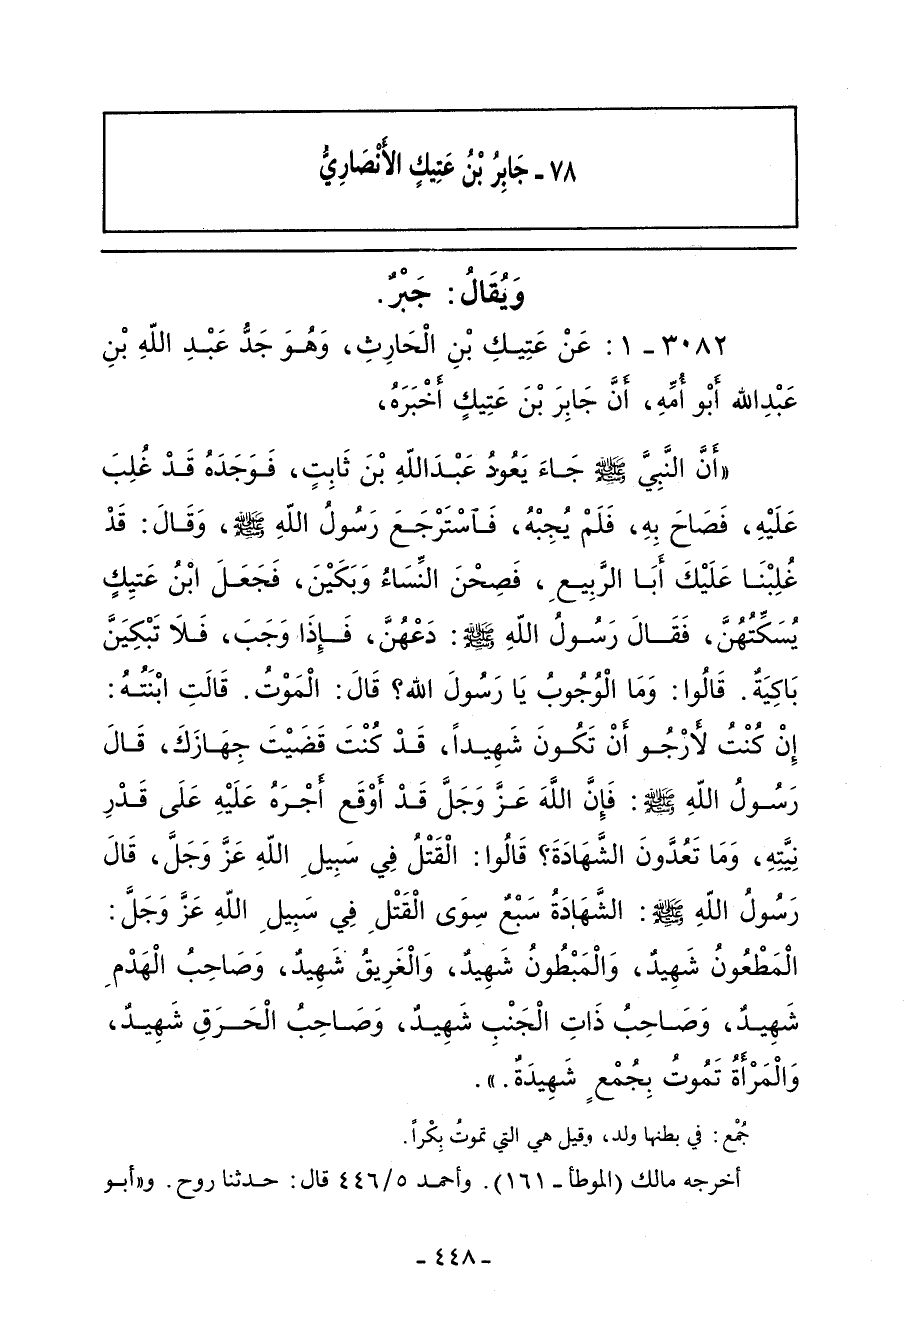 ٧٨ - جَابِرُ بْنُ عَتِيكٍ الأَنْصَارِيُّ
وَيُقَالُ : جَبْرٌ .
٣٠٨٢ - ١ : عَنْ عَتِيكِ بْنِ الْحَارِثِ ، وَهُوَ جَدُّ عَبْدِ اللّهِ بْنِ
عَبْدِالله أَبُو أُمِّهِ ، أَنَّ جَابِرَ بْنَ عَتِيكٍ أَخْبَرَهُ ،
«أَنَّ النَّبِيَّ ﷺ جَاءَ يَعُودُ عَبْدَاللّهِ بْنَ ثَابِتٍ ، فَوَجَدَهُ قَدْ غُلِبَ
عَلَيْهِ ، فَصَاحَ بِهِ ، فَلَمْ يُجِبْهُ ، فَآسْتَرْجَعَ رَسُولُ اللّهِ ﷺ ، وَقَالَ : قَدْ
غُلِبْنَا عَلَيْكَ أَبَا الرَّبِيعِ ، فَصِحْنَ النِّسَاءُ وَبَكَيْنَ ، فَجَعَلَ ابْنُ عَتِيكٍ
يُسَكِّتُهُنَّ ، فَقَالَ رَسُولُ اللّهِ ﷺ : دَعْهُنَّ ، فَإِذَا وَجَبَ ، فَلَا تَبْكِيَنَّ
بَاكِيَةٌ . قَالُوا : وَمَا الْوُجُوبُ يَا رَسُولَ الله ؟ قَالَ : الْمَوْتُ . قَالَتِ ابْنَتُهُ :
إِنْ كُنْتُ لأَرْجُو أَنْ تَكُونَ شَهِيداً ، قَدْ كُنْتَ قَضَيْتَ جِهَازَكَ ، قَالَ
رَسُولُ اللّهِ ﷺ : فَإِنَّ اللّهَ عَزَّ وَجَلَّ قَدْ أَوْقَع أَجْرَهُ عَلَيْهِ عَلَى قَدْرِ
نِيَّتِهِ ، وَمَا تَعُدُّونَ الشَّهَادَةَ ؟ قَالُوا : الْقَتْلُ فِي سَبِيلِ اللّهِ عَزَّ وَجَلَّ ، قَالَ
رَسُولُ اللّهِ ﷺ : الشَّهَادَةُ سَبْعٌ سِوَى الْقَتْلِ فِي سَبِيلِ اللّهِ عَزَّ وَجَلَّ :
الْمَطْعُونُ شَهِيدٌ ، وَالْمَبْطُونُ شَهِيدٌ ، وَالْغَرِيقُ شَهِيدٌ ، وَصَاحِبُ الْهَدْمِ
شَهِيدٌ ، وَصَاحِبُ ذَاتِ الْجَنْبِ شَهِيدٌ ، وَصَاحِبُ الْحَرَقِ شَهِيدٌ ،
وَالْمَرْأَةُ تَمُوتُ بِجُمْعٍ شَهِيدَةٌ .» .
جُمْع : في بطنها ولد ، وقيل هي التي تموتُ بِكْراً .
أخرجه مالك (الموطأ - ١٦١) . وأحمد ٤٤٦/٥ قال : حدثنا روح . و«أبو
- ٤٤٨ -